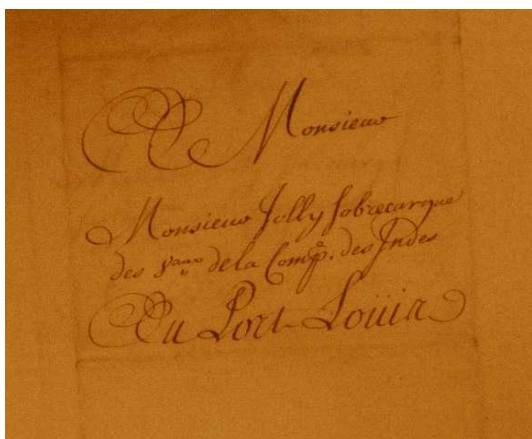 A Monsieur
Monsieur Jolly Sobrecarque
des Vaux. de la Compe. des Indes
Au Port-Loüis